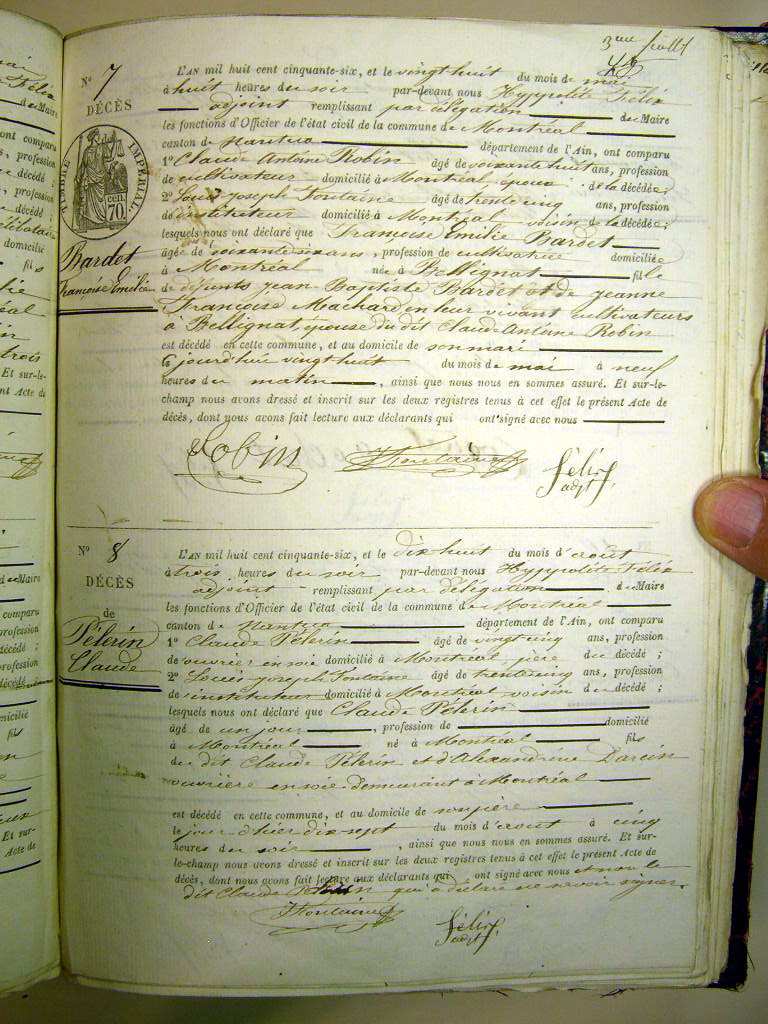 3me feuillet
No 7
DÉCÈS
TIMBRE IMPÉRIAL
70 cen
Bardet
Françoise Emilie
L'AN mil huit cent cinquante-six, et le vingt huit du mois de mai
à huit heures du soir par-devant nous Hyppolite Félix
adjoint remplissant par délégation du Maire
les fonctions d'Officier de l'état civil de la commune de Montréal
canton de Nantua département de l'Ain, ont comparu
1o Claude Antoine Robin âgé de soixante huit ans, profession
de cultivateur domicilié à Montréal époux de la décédée
2o Louis Joseph Fontaine âgé de trente cinq ans, profession
de instituteur domicilié à Montréal voisin de la décédée;
lesquels nous ont déclaré que Françoise Emilie Bardet
âgée de soixante six ans, profession de cultivatrice domiciliée
à Montréal née à Bellignat fille
de défunts Jean Baptiste Bardet et de Jeanne
Françoise Machard en leur vivant cultivateurs
à Bellignat, épouse du dit Claude Antoine Robin
est décédé en cette commune, et au domicile de son mari
ce jourd'hui vingt huit du mois de mai à neuf
heures du matin, ainsi que nous nous en sommes assuré. Et sur-le-
champ nous avons dressé et inscrit sur les deux registres tenus à cet effet le présent Acte de
décès, dont nous avons fait lecture aux déclarants qui ont signé avec nous
Robin Fontaine Félix
adjt.
No 8
DÉCÈS
de
Pélerin
Claude
L'AN mil huit cent cinquante-six, et le dix huit du mois d'aout
à trois heures du soir par-devant nous Hyppolite Félix
adjoint remplissant par délégation du Maire
les fonctions d'Officier de l'état civil de la commune de Montréal
canton de Nantua département de l'Ain, ont comparu
1o Claude Pélerin âgé de vingt cinq ans, profession
de ouvrier en soie domicilié à Montréal père du décédé;
2o Louis Joseph Fontaine âgé de trente cinq ans, profession
de instituteur domicilié à Montréal voisin du décédé;
lesquels nous ont déclaré que Claude Pélerin
âgé de un jour, profession de domicilié
à Montréal né à Montréal fils
du dit Claude Pélerin et d'Alexandrine Darcin
ouvrière en soie demeurant à Montréal
est décédé en cette commune, et au domicile de son père
le jour d'hier dix sept du mois d'aout à cinq
heures du soir, ainsi que nous nous en sommes assuré. Et sur-
le-champ nous avons dressé et inscrit sur les deux registres tenus à cet effet le présent Acte de
décès, dont nous avons fait lecture aux déclarants qui ont signé avec nous et non le
dit Claude qui a déclaré ne savoir signer.
Fontaine Félix
adjt.